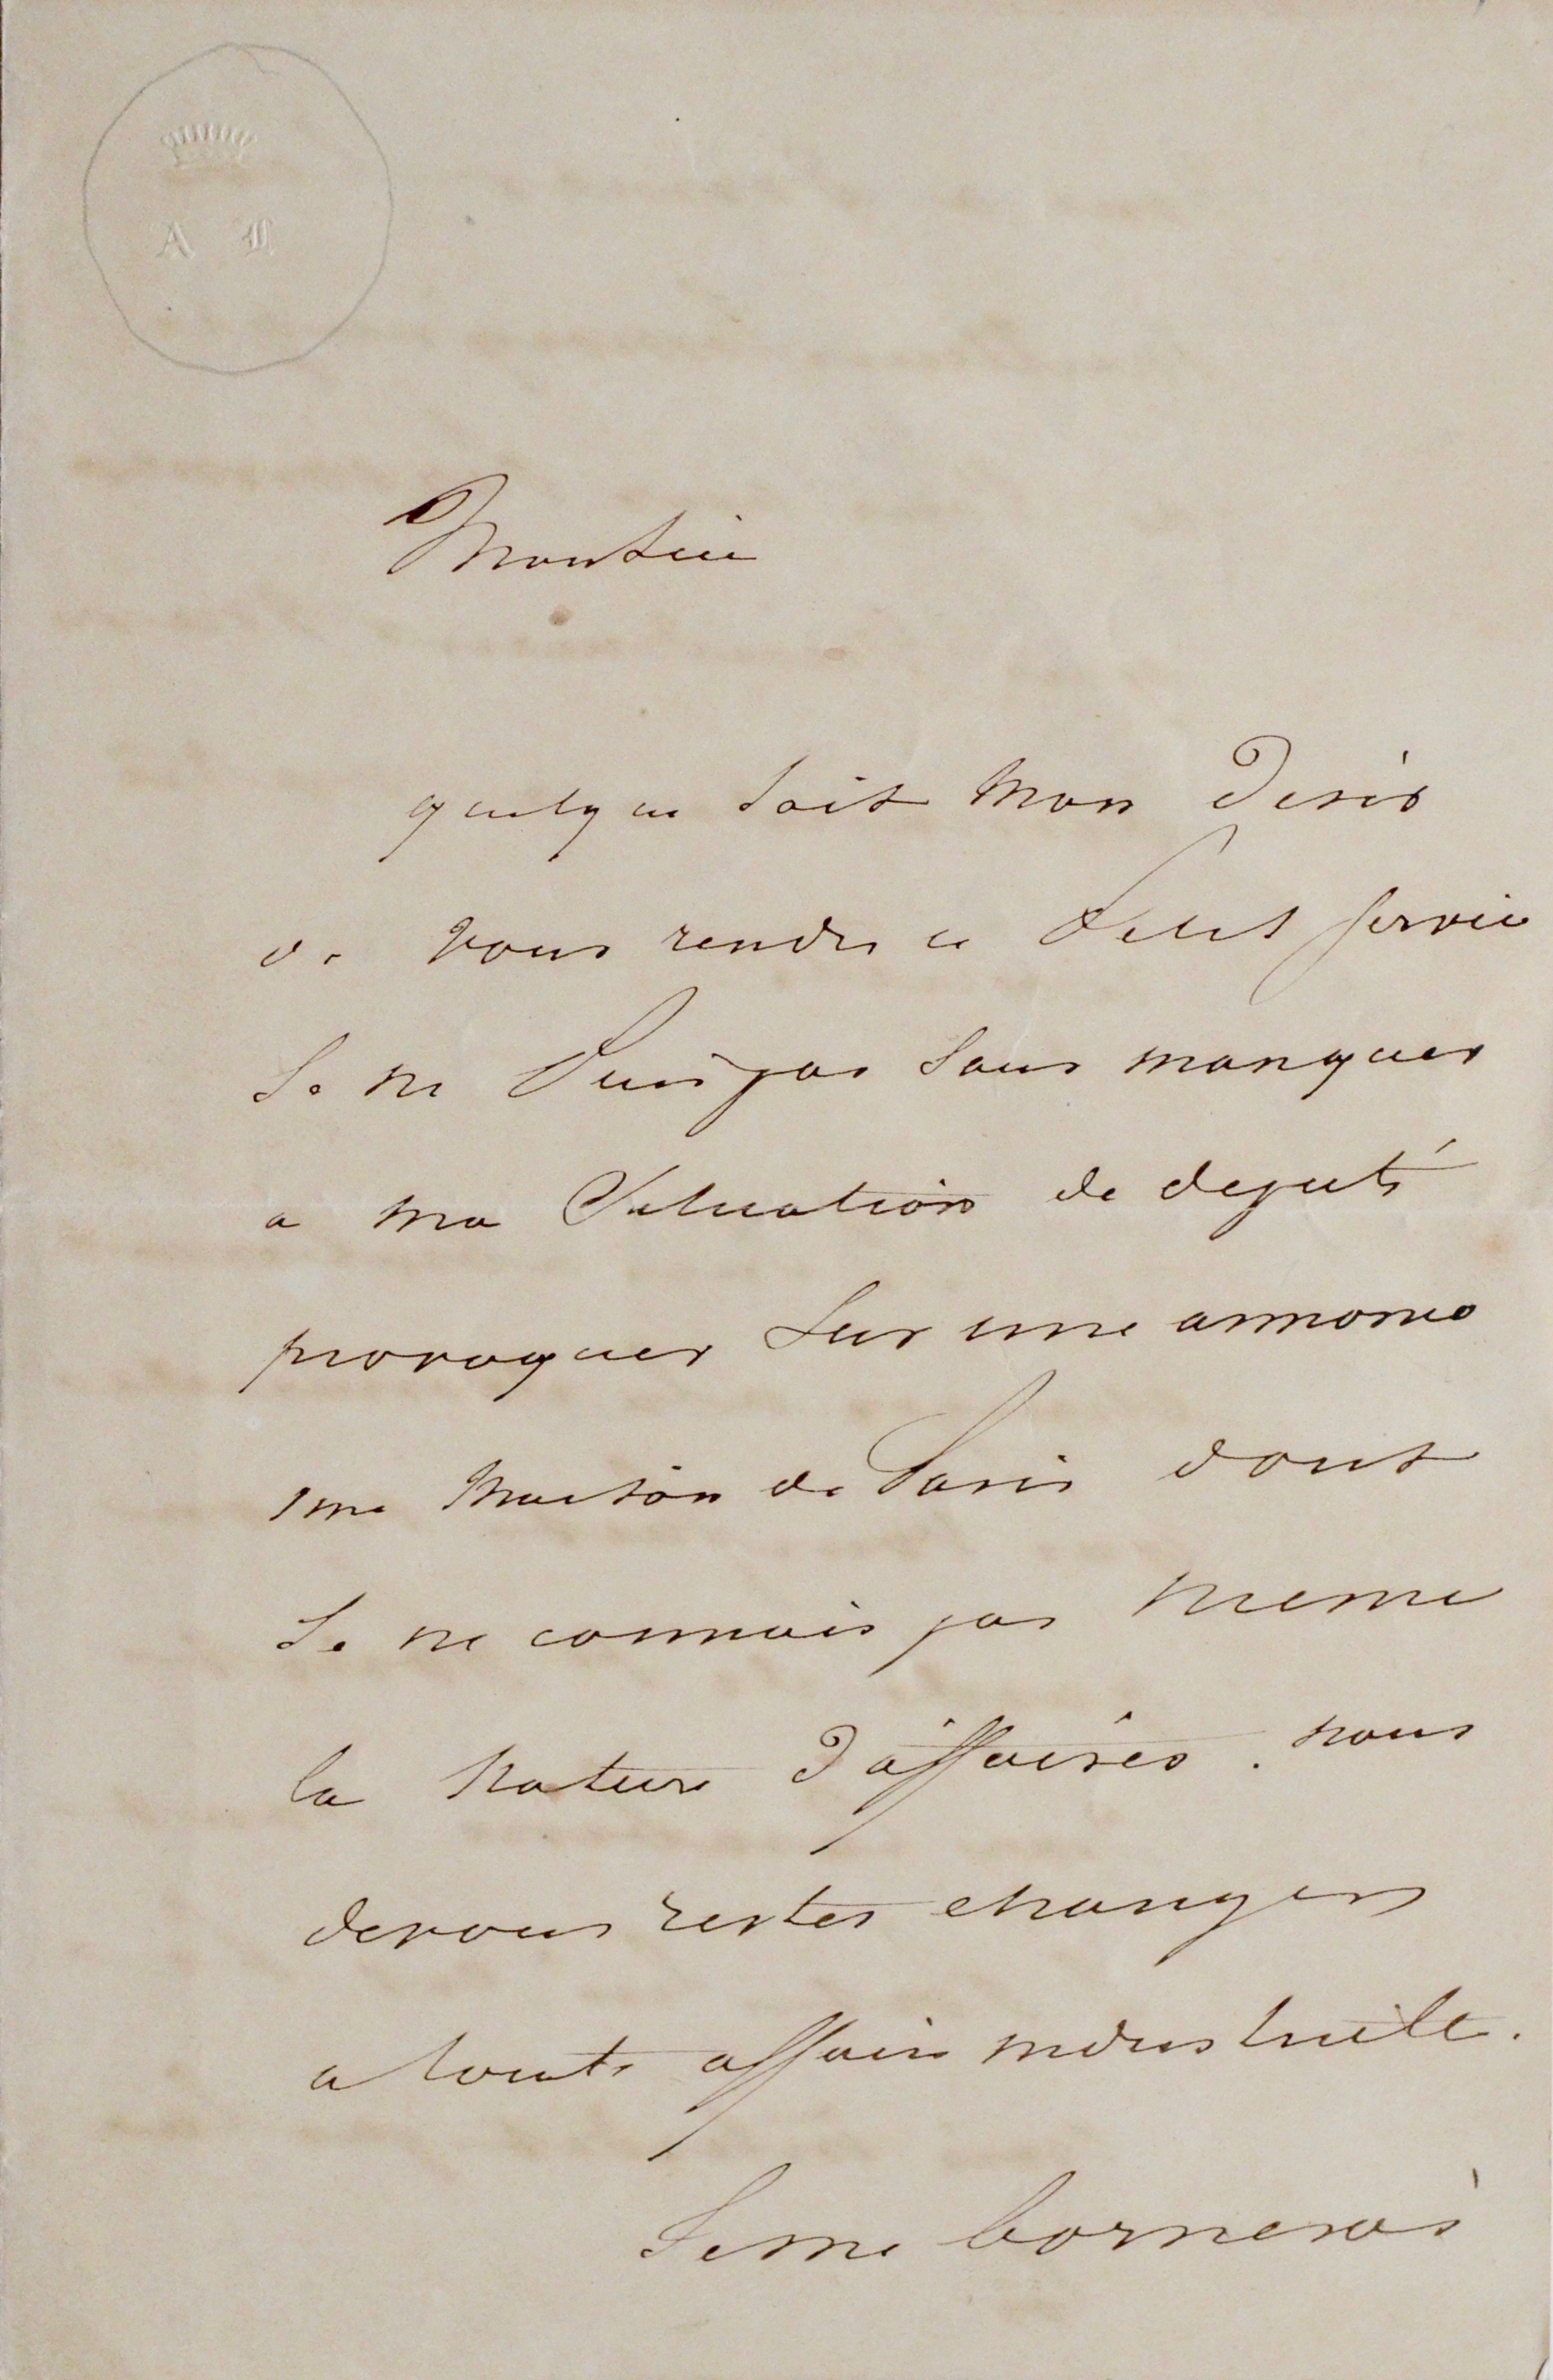 A L
Monsieur
quelque soit mon desir
de vous rendre ce petit service
Je ne Puis pas sans manquer
a ma Situation de deputé
provoquer sur une annonce
une Maison de Paris dont
Je ne connais pas meme
la Nature d'affaires. nous
devons rester etrangers
a toute affaire industrielle.
Je me bornerai